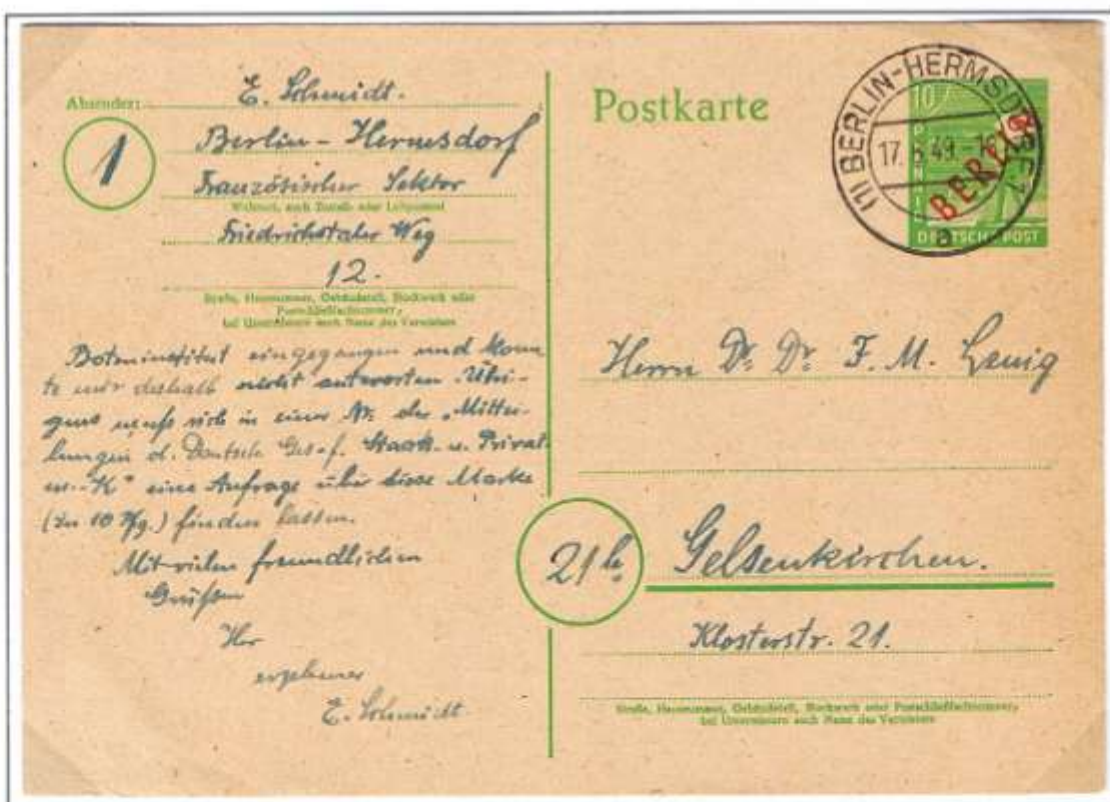 Absender:
E. Schmidt.
1
Berlin-Hermsdorf
Französischer Sektor
Wohnort, auch Zustell- oder Leitpostamt
Friedrichstaler Weg
12.
Straße, Hausnummer, Gebäudeteil, Stockwerk oder
Postschließfachnummer,
bei Untermietern auch Name des Vermieters
eingegangen und konn-
te nur deshalb nicht antworten. Übri-
gens muß sich in einer Nr. der „Mittei-
lungen d. Deutsch. Staats- u. Privat-
eine Anfrage über diese Marke
(zu 10 Pfg.) finden lassen.
Mit vielen freundlichen
Grüßen
Ihr
ergebener
E. Schmidt
Postkarte
(1) BERLIN-HERMSDORF 1
17. 6. 49.
a
10
PFENNIG
BERLIN
DEUTSCHE POST
Herrn Dr. Dr. F. M.
21b
Gelsenkirchen.
Klosterstr. 21.
Straße, Hausnummer, Gebäudeteil, Stockwerk oder Postschließfachnummer,
bei Untermietern auch Name des Vermieters